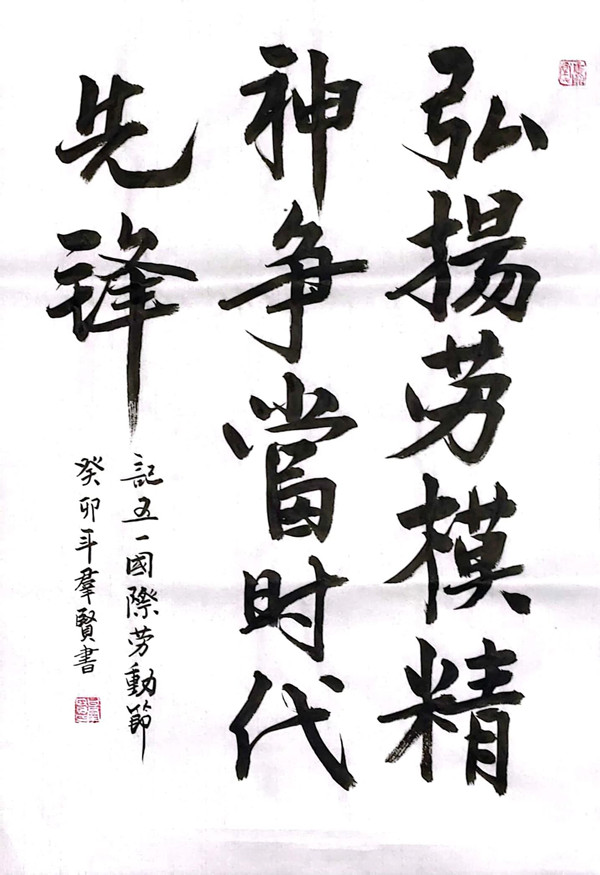 弘揚劳模精
神争當时代
先锋
記五一國際劳動節
癸卯年羣賢書